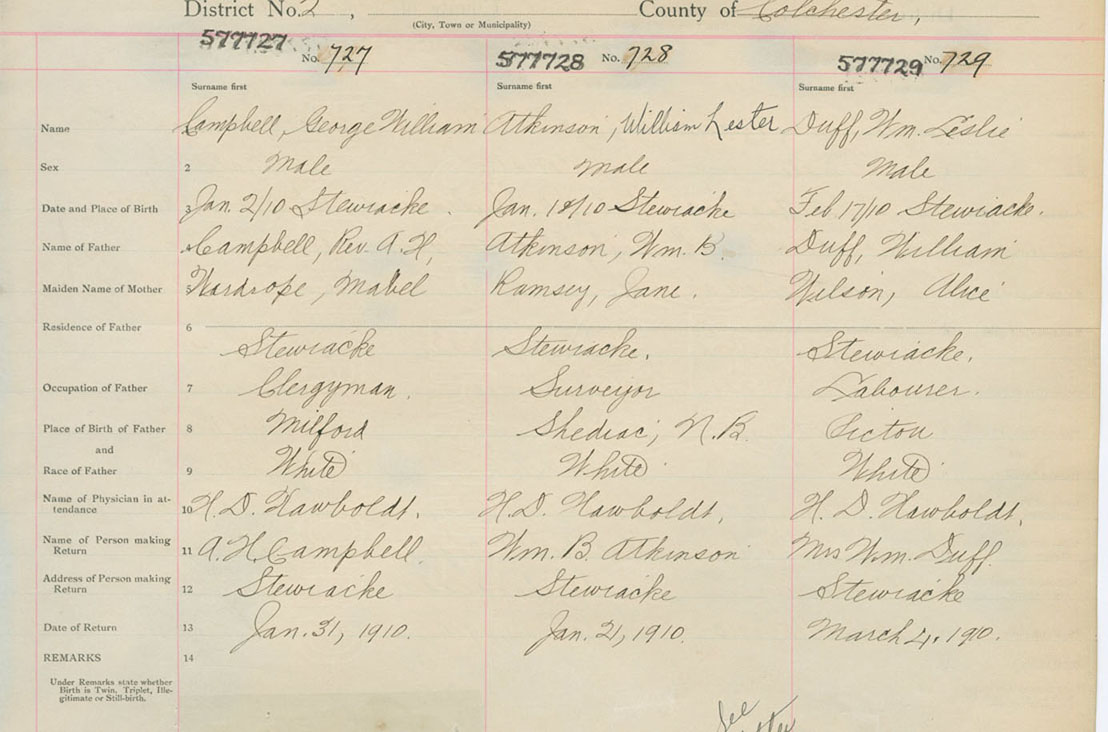 District No. 2, County of Colchester,
(City, Town or Municipality)
577727 No. 727 577728 No. 728 577729 No. 729
Surname first Surname first Surname first
Name Campbell, George William Atkinson, William Lester Duff, Wm. Leslie
Sex 2 Male Male Male
Date and Place of Birth 3 Jan. 2/10 Stewiacke. Jan. 18/10 Stewiacke Feb 17/10 Stewiacke.
Name of Father Campbell, Rev. A. H, Atkinson, Wm. B. Duff, William
Maiden Name of Mother 5 Wardrope, Mabel Ramsey, Jane. Wilson, Alice
Residence of Father 6
Stewiacke Stewiacke. Stewiacke.
Occupation of Father 7 Clergyman. Surveyor Labourer.
Place of Birth of Father 8 Milford Shediac, N.B. Pictou
and
Race of Father 9 White White White
Name of Physician in at-
tendance 10 H. D. Hawboldt. H. D. Hawboldt, H. D. Hawboldt,
Name of Person making
Return 11 A. H. Campbell. Wm. B. Atkinson Mrs Wm. Duff.
Address of Person making
Return 12 Stewiacke Stewiacke Stewiacke
Date of Return 13 Jan. 31, 1910. Jan. 21, 1910. March 4, 1910.
REMARKS 14
Under Remarks state whether
Birth is Twin, Triplet, Ille-
gitimate or Still-birth.
See